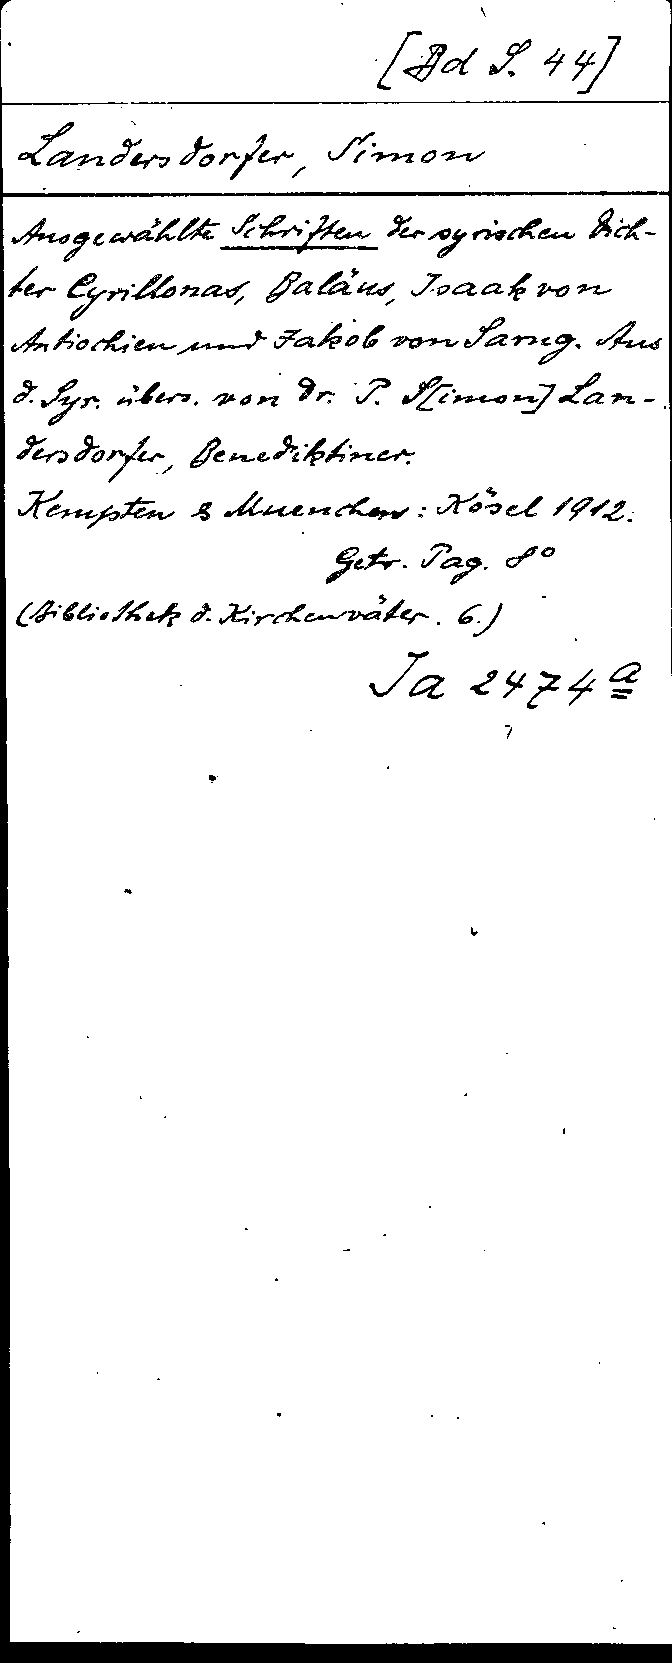 [Bd S. 44]
Landersdorfer, Simon
Ausgewählte Schriften der syrischen Dich-
ter Cyrillonas, Baläus, Isaak von
Antiochien und Jakob von Sarug. Aus
d. Syr. übers. von Dr. P. S[imon] Lan-
dersdorfer, Benediktiner.
Kempten & Muenchen: Kösel 1912.
Getr. Pag. 8°
(Bibliothek d. Kirchenväter. 6.)
Ja 2474 a